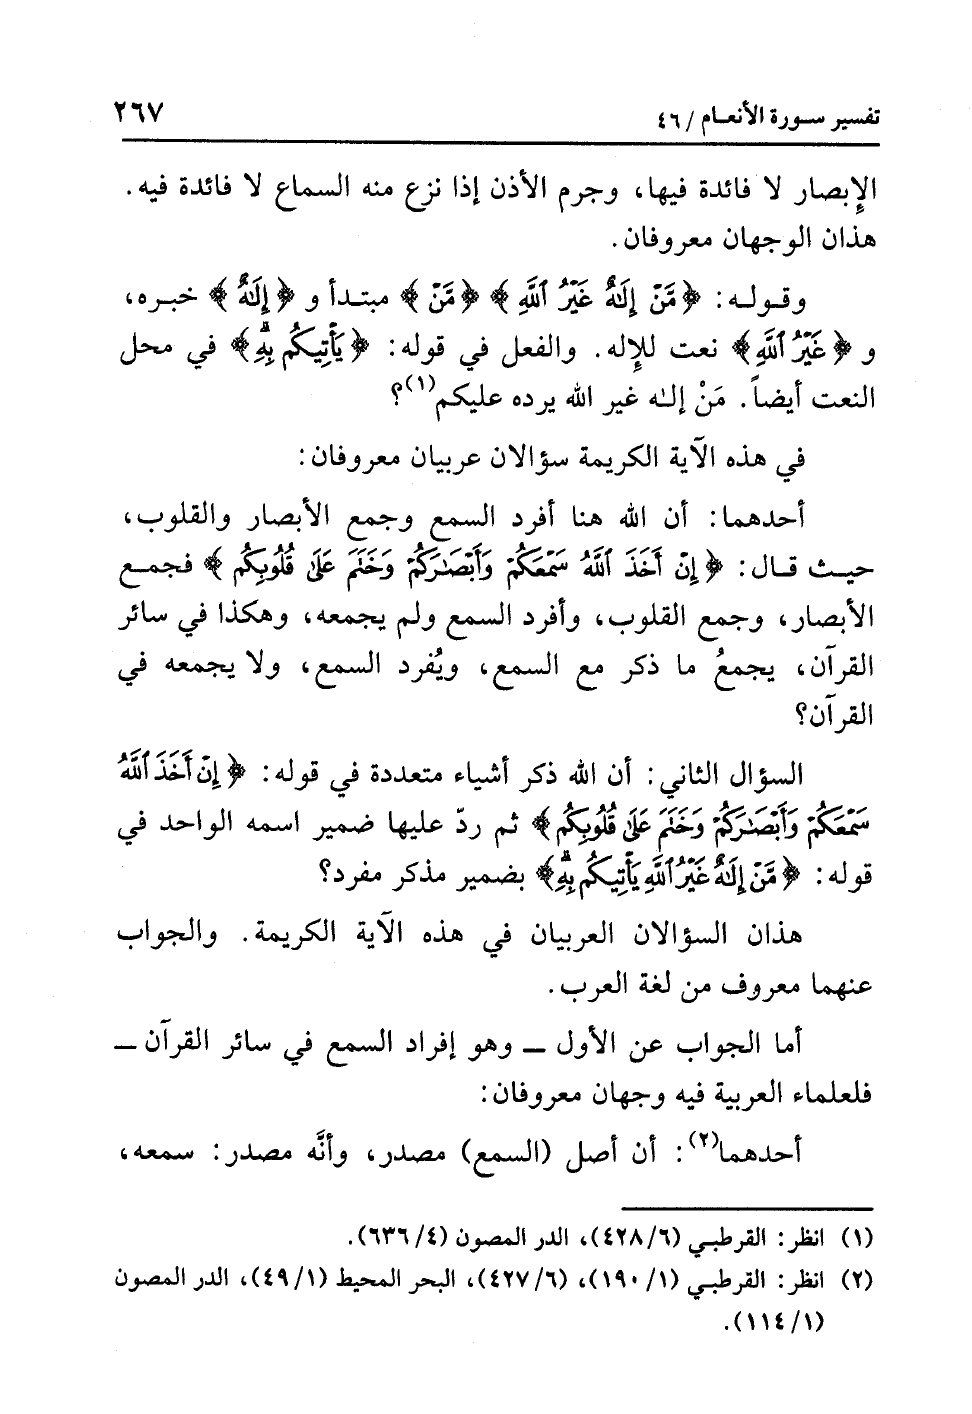 تفسير سورة الأنعام / ٤٦
٢٦٧
الإِبصار لا فائدة فيها، وجرم الأذن إذا نزع منه السماع لا فائدة فيه.
هذان الوجهان معروفان.
وقوله: ﴿مَّنْ إِلَٰهٌ غَيْرُ ٱللَّهِ﴾ ﴿مَّنْ﴾ مبتدأ و ﴿إِلَٰهٌ﴾ خبره،
و ﴿غَيْرُ ٱللَّهِ﴾ نعت للإِله. والفعل في قوله: ﴿يَأْتِيكُم بِهِۗ﴾ في محل
النعت أيضاً. مَنْ إلـٰه غير الله يرده عليكم(١)؟
في هذه الآية الكريمة سؤالان عربيان معروفان:
أحدهما: أن الله هنا أفرد السمع وجمع الأبصار والقلوب،
حيث قال: ﴿إِنْ أَخَذَ ٱللَّهُ سَمْعَكُمْ وَأَبْصَٰرَكُمْ وَخَتَمَ عَلَىٰ قُلُوبِكُم﴾ فجمع
الأبصار، وجمع القلوب، وأفرد السمع ولم يجمعه، وهكذا في سائر
القرآن، يجمعُ ما ذكر مع السمع، ويُفرد السمع، ولا يجمعه في
القرآن؟
السؤال الثاني: أن الله ذكر أشياء متعددة في قوله: ﴿إِنْ أَخَذَ ٱللَّهُ
سَمْعَكُمْ وَأَبْصَٰرَكُمْ وَخَتَمَ عَلَىٰ قُلُوبِكُم﴾ ثم ردّ عليها ضمير اسمه الواحد في
قوله: ﴿مَّنْ إِلَٰهٌ غَيْرُ ٱللَّهِ يَأْتِيكُم بِهِۗ﴾ بضمير مذكر مفرد؟
هذان السؤالان العربيان في هذه الآية الكريمة. والجواب
عنهما معروف من لغة العرب.
أما الجواب عن الأول ــ وهو إفراد السمع في سائر القرآن ــ
فلعلماء العربية فيه وجهان معروفان:
أحدهما(٢): أن أصل (السمع) مصدر، وأنَّه مصدر: سمعه،
(١) انظر: القرطبي (٦/ ٤٢٨)، الدر المصون (٤/ ٦٣٦).
(٢) انظر: القرطبي (١/ ١٩٠)، (٦/ ٤٢٧)، البحر المحيط (١/ ٤٩)، الدر المصون
(١/ ١١٤).